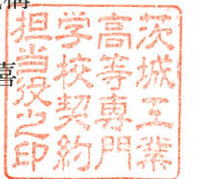 茨城工業
高等専門
学校契約
担当役之印